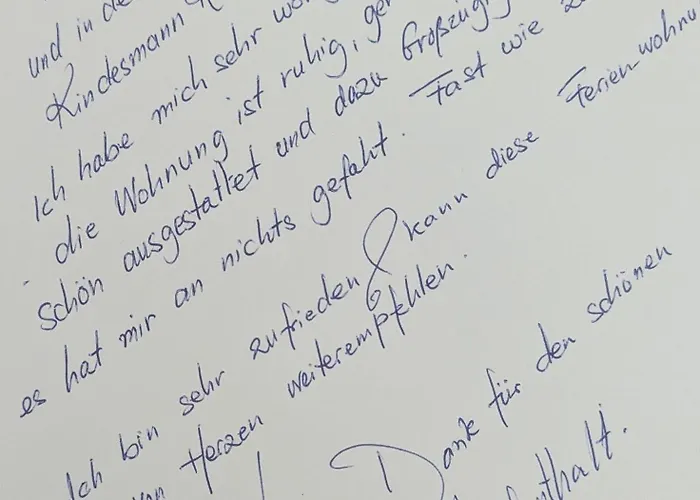 und in de
Kindesmann
Ich habe mich sehr wo
die Wohnung ist ruhig, ge
schön ausgestattet und dazu Großzügi
es hat mir an nichts gefahlt. Fast wie
Ich bin sehr zufrieden & kann diese Ferienwohnu
Herzen weiterempfehlen.
Dank für den schönen
nthalt.